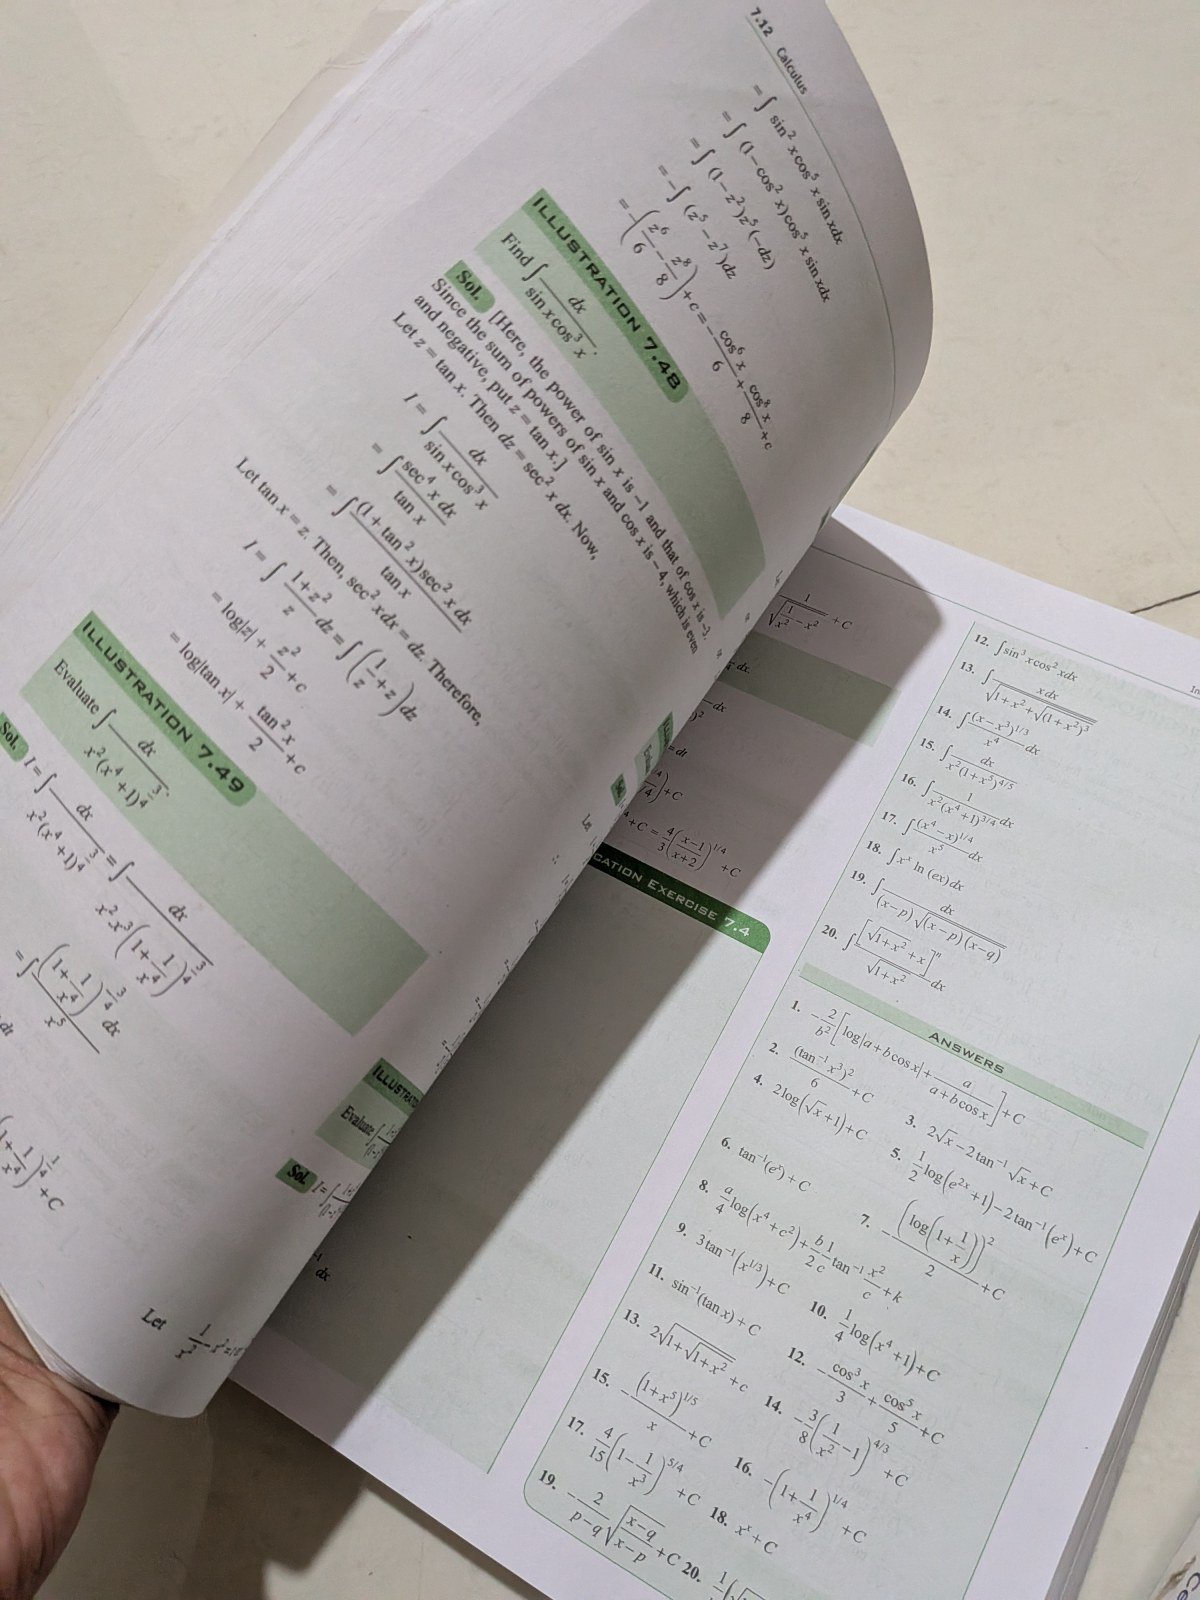 7.12 Calculus
= ∫ sin² x cos⁵ x sin x dx
= ∫ (1 – cos² x) cos⁵ x sin x dx
= ∫ (1 – z²) z⁵ (–dz)
= – ∫ (z⁵ – z⁷) dz
= –(z⁶/6 – z⁸/8) + c = – cos⁶ x/6 + cos⁸ x/8 + c
ILLUSTRATION 7.48
Find ∫ dx/(sin x cos³ x).
Sol. [Here, the power of sin x is –1 and that of cos x is –3.
Since the sum of powers of sin x and cos x is – 4, which is even
and negative, put z = tan x.]
Let z = tan x. Then dz = sec² x dx. Now,
I = ∫ dx/(sin x cos³ x)
= ∫ sec⁴ x dx/tan x
= ∫ (1 + tan² x) sec² x dx/tan x
Let tan x = z. Then, sec² x dx = dz. Therefore,
I = ∫ (1 + z²)/z dz = ∫ (1/z + z) dz
= log|z| + z²/2 + c
= log|tan x| + tan² x/2 + c
ILLUSTRATION 7.49
Evaluate ∫ dx/(x²(x⁴ + 1)^(3/4)).
Sol. I = ∫ dx/(x²(x⁴ + 1)^(3/4)) = ∫ dx/(x² x³(1 + 1/x⁴)^(3/4))
= ∫ (1 + 1/x⁴)^(–3/4) dx/x⁵
(1 + 1/x⁴)^(1/4) + C
Evaluate
Sol.
Let
+ C = 4/3 ((x – 1)/(x + 2))^(1/4) + C
CATION EXERCISE 7.4
12. ∫ sin³ x cos² x dx
13. ∫ x dx/√(1 + x² + √((1 + x²)³))
14. ∫ (x – x³)^(1/3)/x⁴ dx
15. ∫ dx/(x²(1 + x⁵)^(4/5))
16. ∫ 1/(x²(x⁴ + 1)^(3/4)) dx
17. ∫ (x⁴ – x)^(1/4)/x⁵ dx
18. ∫ xˣ ln (ex) dx
19. ∫ dx/((x – p)√((x – p)(x – q)))
20. ∫ [√(1 + x²) + x]ⁿ/√(1 + x²) dx
ANSWERS
1. – 2/b² [log|a + b cos x| + a/(a + b cos x)] + C
2. (tan⁻¹ x³)²/6 + C
3. 2√x – 2 tan⁻¹ √x + C
4. 2 log(√x + 1) + C
5. 1/2 log(e²ˣ + 1) – 2 tan⁻¹(eˣ) + C
6. tan⁻¹(eˣ) + C
7. – (log(1 + 1/x))²/2 + C
8. a/4 log(x⁴ + c²) + b/2 1/c tan⁻¹ x²/c + k
9. 3 tan⁻¹(x^(1/3)) + C
10. 1/4 log(x⁴ + 1) + C
11. sin⁻¹(tan x) + C
12. – cos³ x/3 + cos⁵ x/5 + C
13. 2√(1 + √(1 + x²)) + c
14. – 3/8 (1/x² – 1)^(4/3) + C
15. – (1 + x⁵)^(1/5)/x + C
16. – (1 + 1/x⁴)^(1/4) + C
17. 4/15 (1 – 1/x³)^(5/4) + C
18. xˣ + C
19. – 2/(p – q) √((x – q)/(x – p)) + C
20.